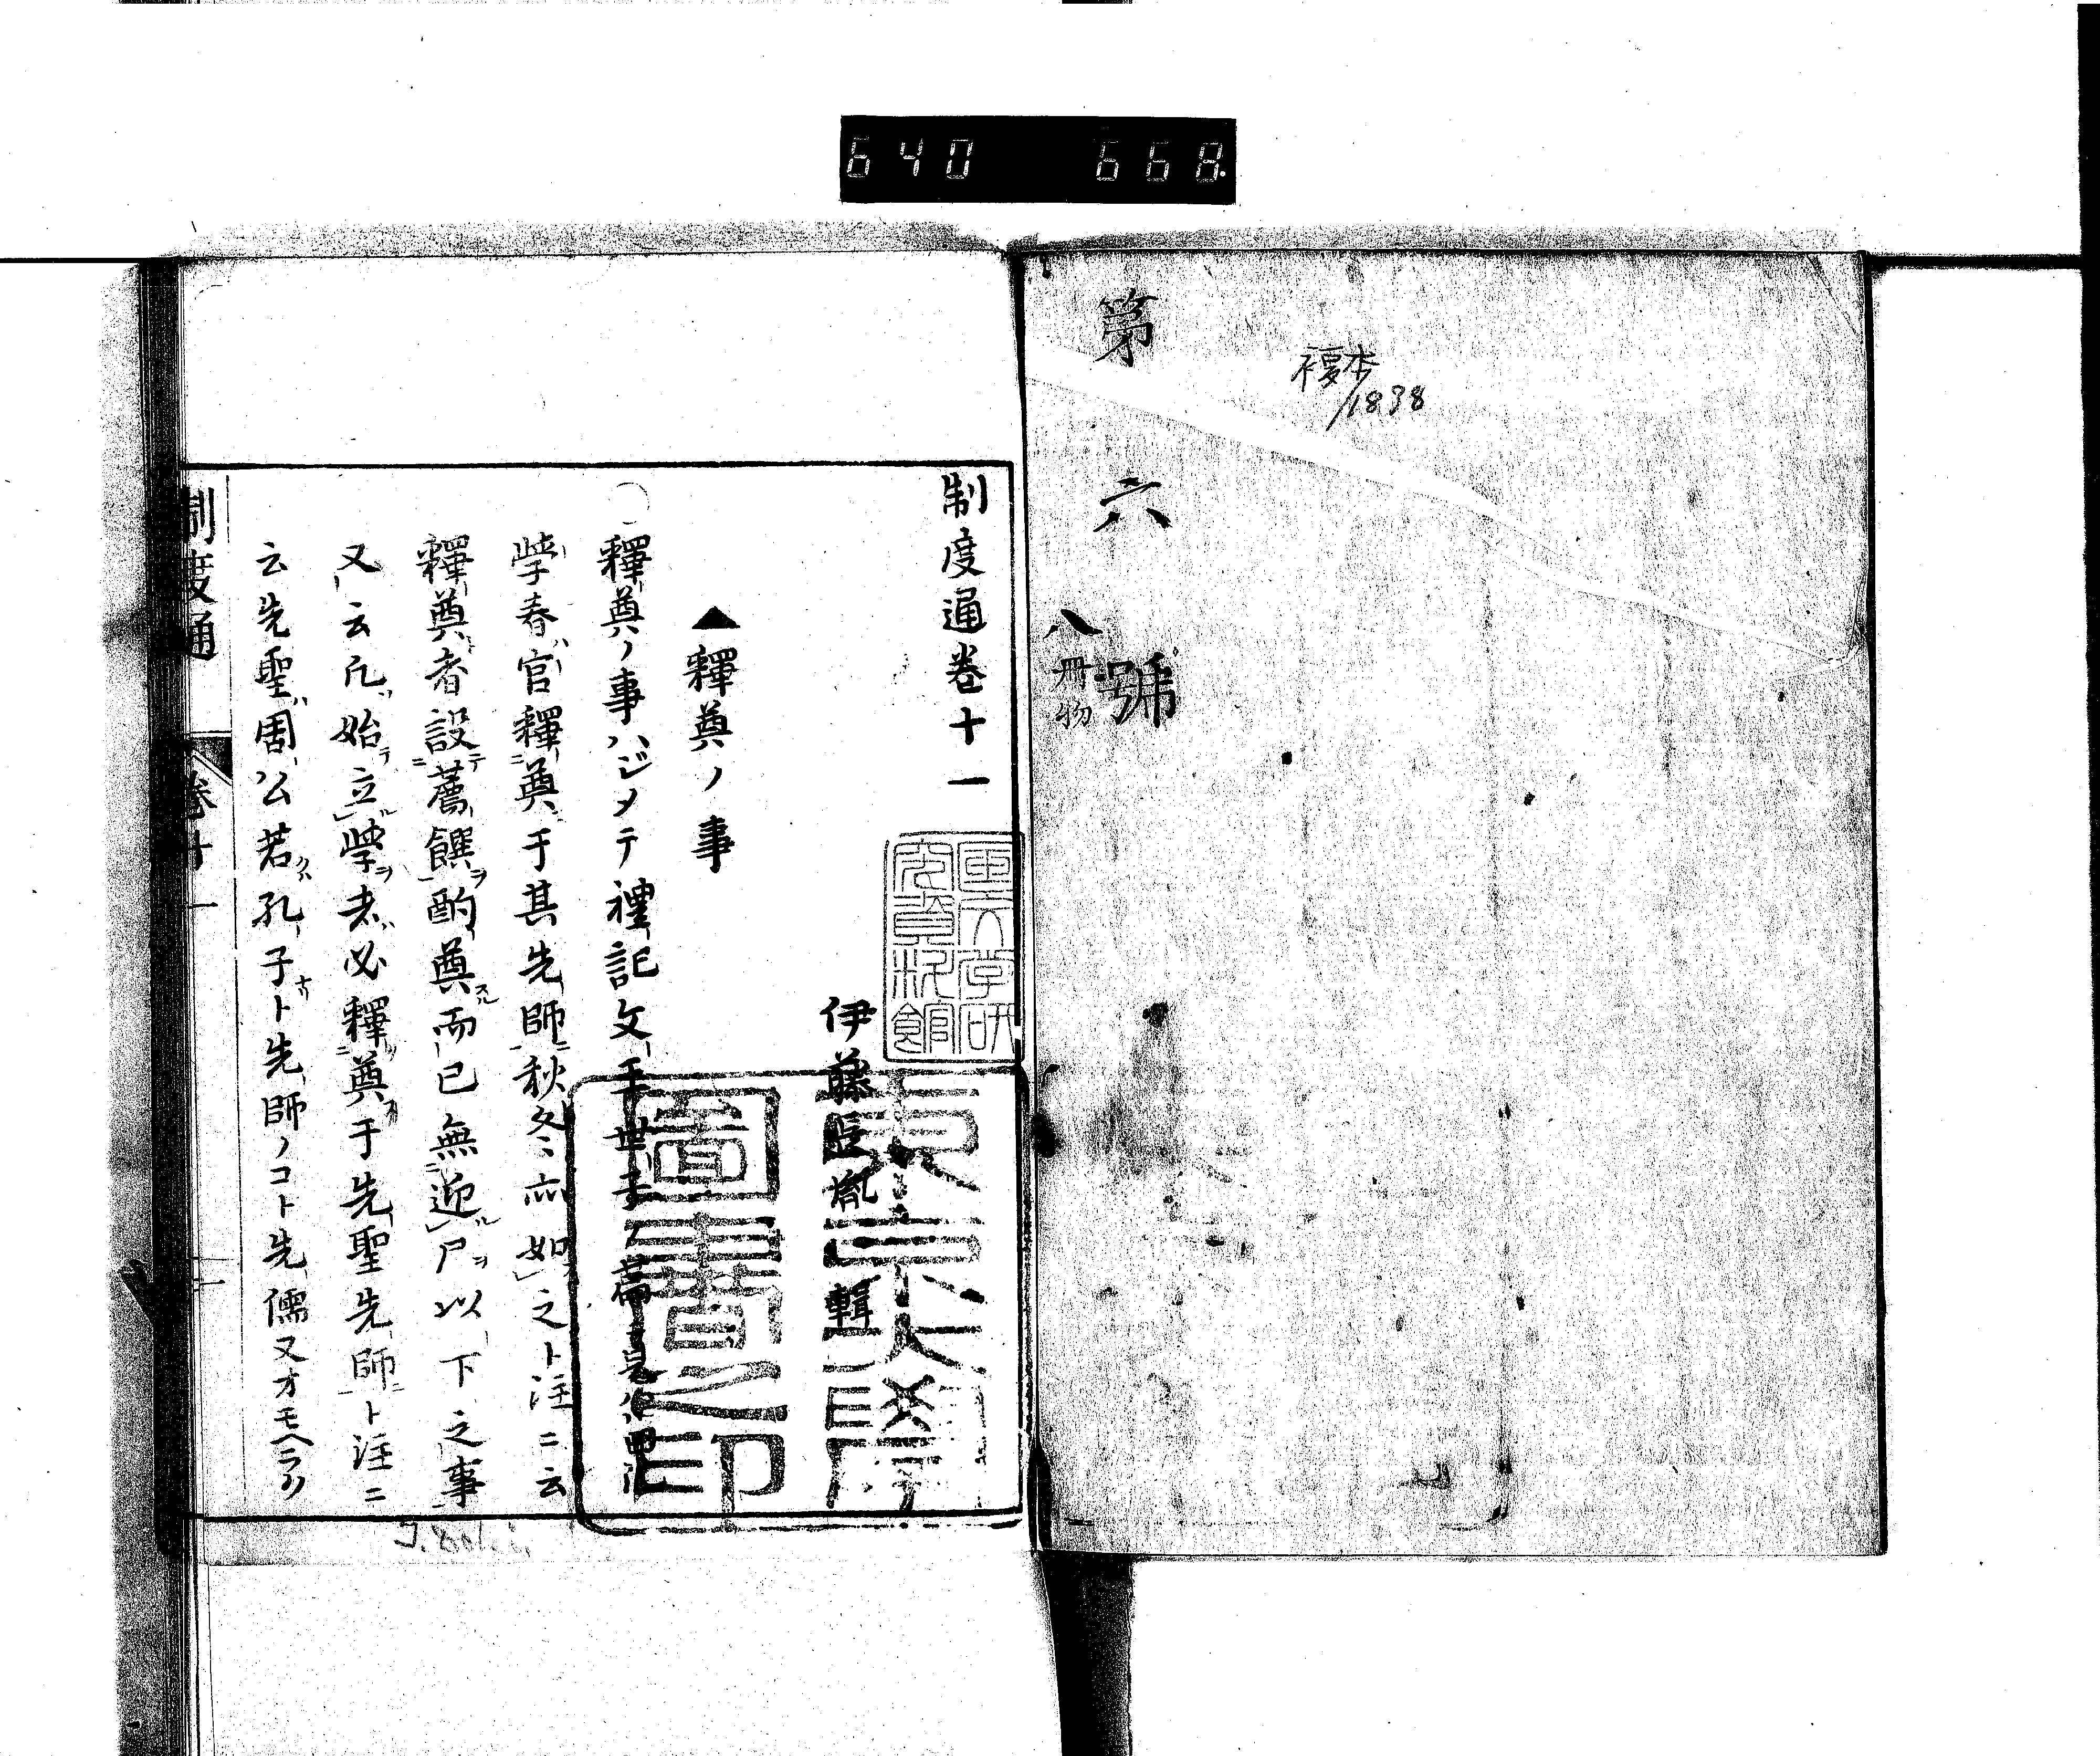 640 668.
第六號
八冊物
複本/1838
制度通卷十一
伊藤長胤輯
▲釋奠ノ事
○釋奠ノ事ハジメテ禮記文王世子ノ篇ニ見ヘ
學春官釋奠于其先師秋冬亦如之ト注ニ云
釋奠者設薦饌酌奠而已無迎尸以下之事
又云凡始立學者必釋奠于先聖先師ト注ニ
云先聖周公若孔子ト先師ノコト先儒又オモヘラク
制度通 卷十一
東京大學圖書之印